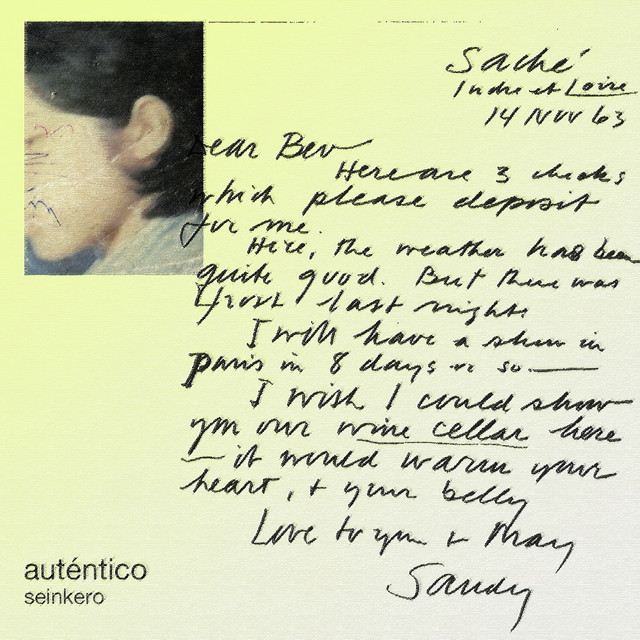 Saché
Indre et Loire
14 Nov 63
Dear Bev
Here are 3 checks
which please deposit
for me.
Here, the weather has been
quite good. But there was
frost last night.
I will have a show in
Paris in 8 days or so —
I wish I could show
you our wine cellar here
— it would warm your
heart, + your belly
Love to you + May
Sandy
auténtico
seinkero